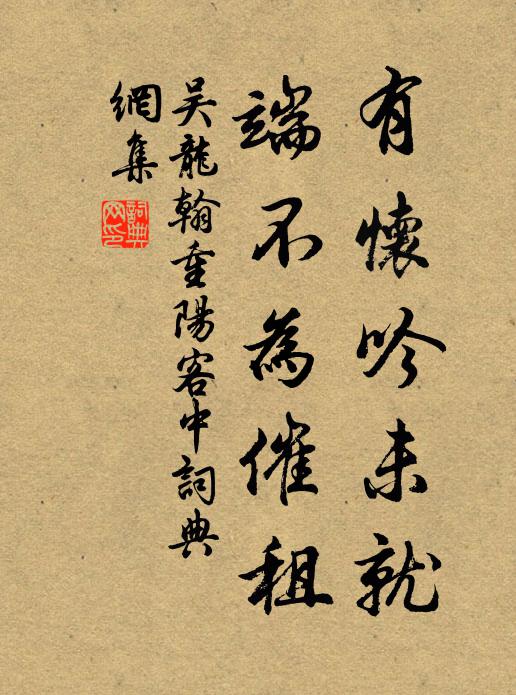 有懷吟未就
端不為催租
吳龍翰重陽客中詞典
網集
詞典
網印